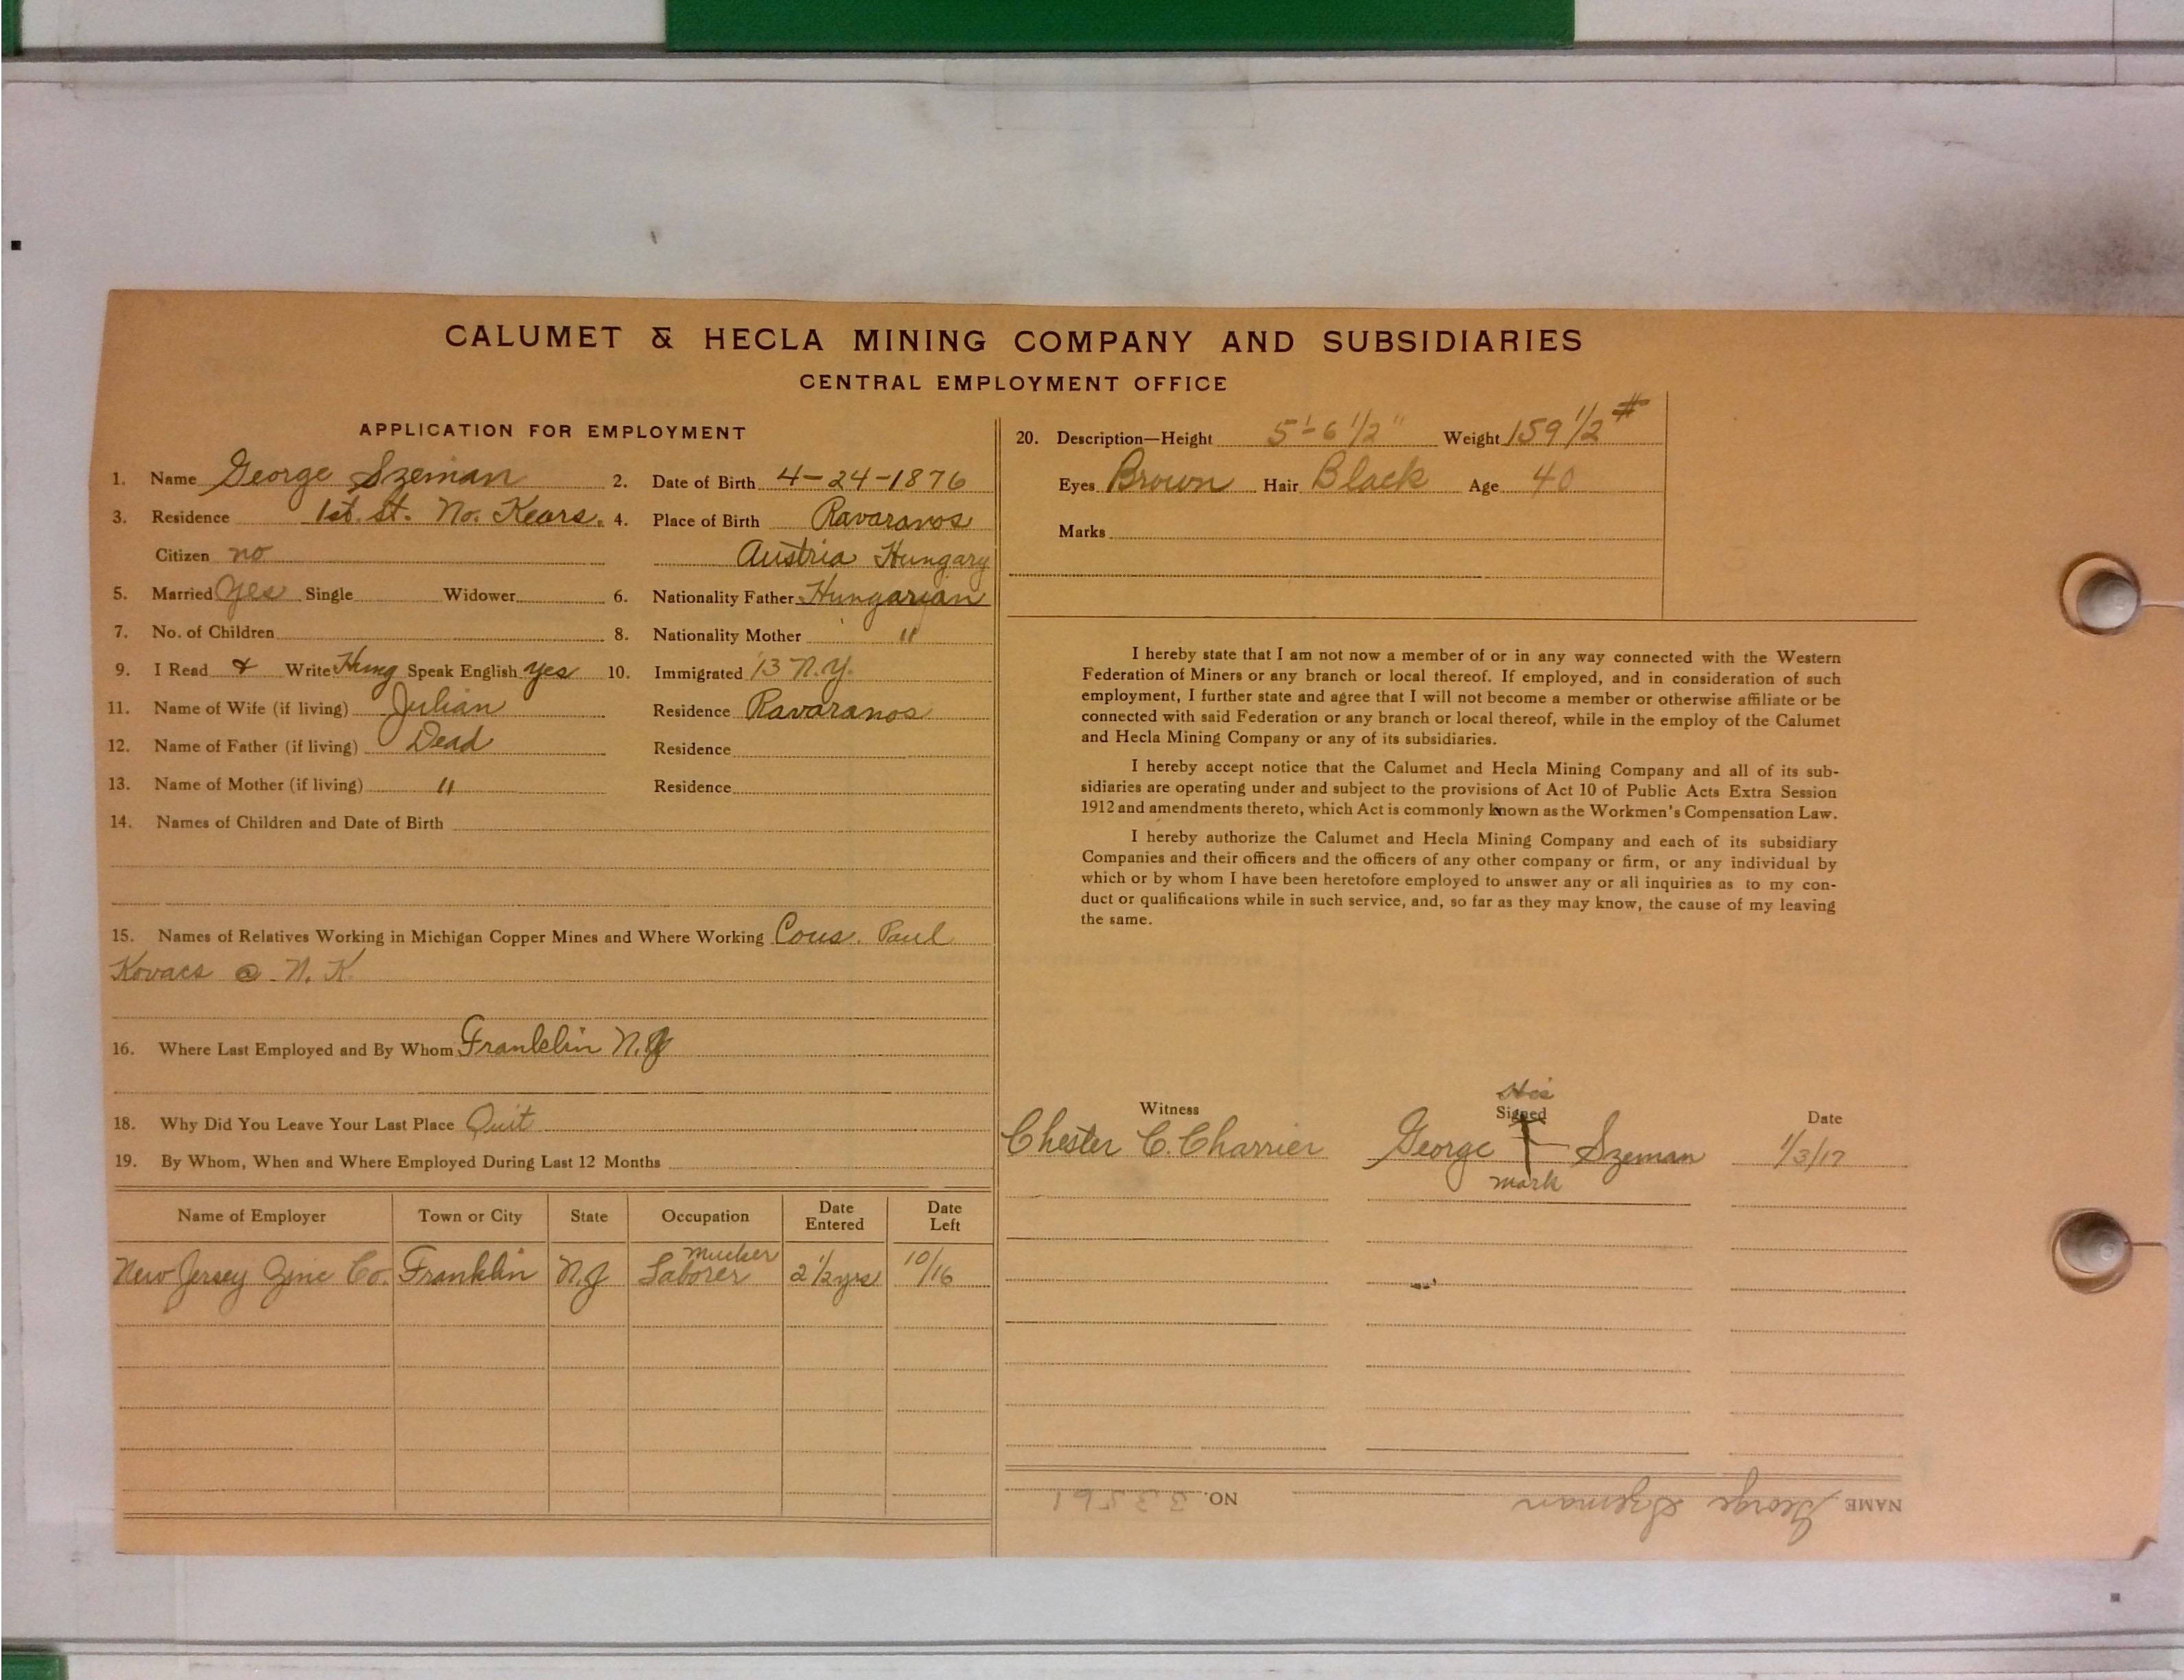 CALUMET & HECLA MINING COMPANY AND SUBSIDIARIES
CENTRAL EMPLOYMENT OFFICE
APPLICATION FOR EMPLOYMENT
1. Name George Szeman 2. Date of Birth 4-24-1876
3. Residence 1st. St. No. Kears. 4. Place of Birth Ravaranos
Citizen no Austria Hungary
5. Married yes Single Widower 6. Nationality Father Hungarian
7. No. of Children 8. Nationality Mother "
9. I Read & Write Hung Speak English yes 10. Immigrated '13 N.Y.
11. Name of Wife (if living) Julian Residence Ravaranos
12. Name of Father (if living) Dead Residence
13. Name of Mother (if living) " Residence
14. Names of Children and Date of Birth
15. Names of Relatives Working in Michigan Copper Mines and Where Working Cous. Paul
Kovacs @ N. K.
16. Where Last Employed and By Whom Franklin N.J
18. Why Did You Leave Your Last Place Quit
19. By Whom, When and Where Employed During Last 12 Months
Name of Employer Town or City State Occupation Date Entered Date Left
mucker
New Jersey Zinc Co. Franklin N.J Laborer 2 1/2 yrs 10/16
20. Description—Height 5'-6 1/2" Weight 159 1/2 #
Eyes Brown Hair Black Age 40
Marks
I hereby state that I am not now a member of or in any way connected with the Western
Federation of Miners or any branch or local thereof. If employed, and in consideration of such
employment, I further state and agree that I will not become a member or otherwise affiliate or be
connected with said Federation or any branch or local thereof, while in the employ of the Calumet
and Hecla Mining Company or any of its subsidiaries.
I hereby accept notice that the Calumet and Hecla Mining Company and all of its sub-
sidiaries are operating under and subject to the provisions of Act 10 of Public Acts Extra Session
1912 and amendments thereto, which Act is commonly known as the Workmen's Compensation Law.
I hereby authorize the Calumet and Hecla Mining Company and each of its subsidiary
Companies and their officers and the officers of any other company or firm, or any individual by
which or by whom I have been heretofore employed to answer any or all inquiries as to my con-
duct or qualifications while in such service, and, so far as they may know, the cause of my leaving
the same.
His
Witness Signed Date
Chester C. Charrier George Szeman 1/3/17
mark
NAME George Szeman NO. 33561